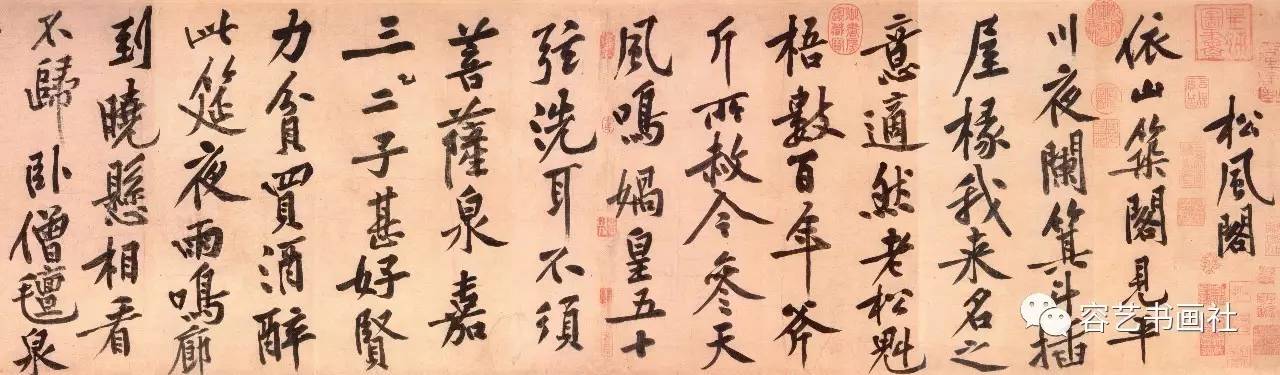 松風閣
依山築閣見平
川夜闌箕斗插
屋椽我来名之
意適然老松魁
梧數百年斧
斤所赦今參天
風鳴媧皇五十
弦洗耳不須
菩薩泉嘉
三二子甚好賢
力貧買酒醉
此筵夜雨鳴廊
到曉懸相看
不歸卧僧氊泉
容艺书画社